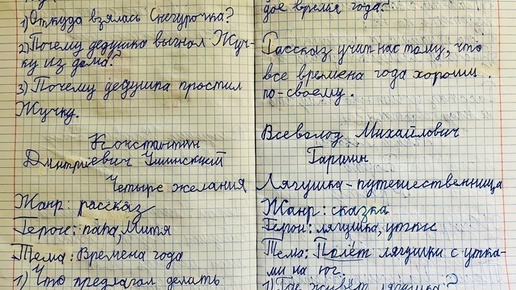 1) Откудо взялась Снегурочка?
2) Почему дедушка выгнал Жуч-
ку из дома?
3) Почему дедушка простил
Жучку.
Константин
Дмитриевич Ушинский
Четыре желания
Жанр: рассказ
Герои: папа, Митя
Тема: Времена года
1) Что предлагал делать
дое время года?
Рассказ учит нас тому, что
все времена года хороши
по-своему.
Всеволод Михайлович
Гаршин
Лягушка-путешественница
Жанр: сказка
Герои: лягушка, утки
Тема: Полёт лягушки с утка-
ми на юг.
1) Где живёт лягушка?